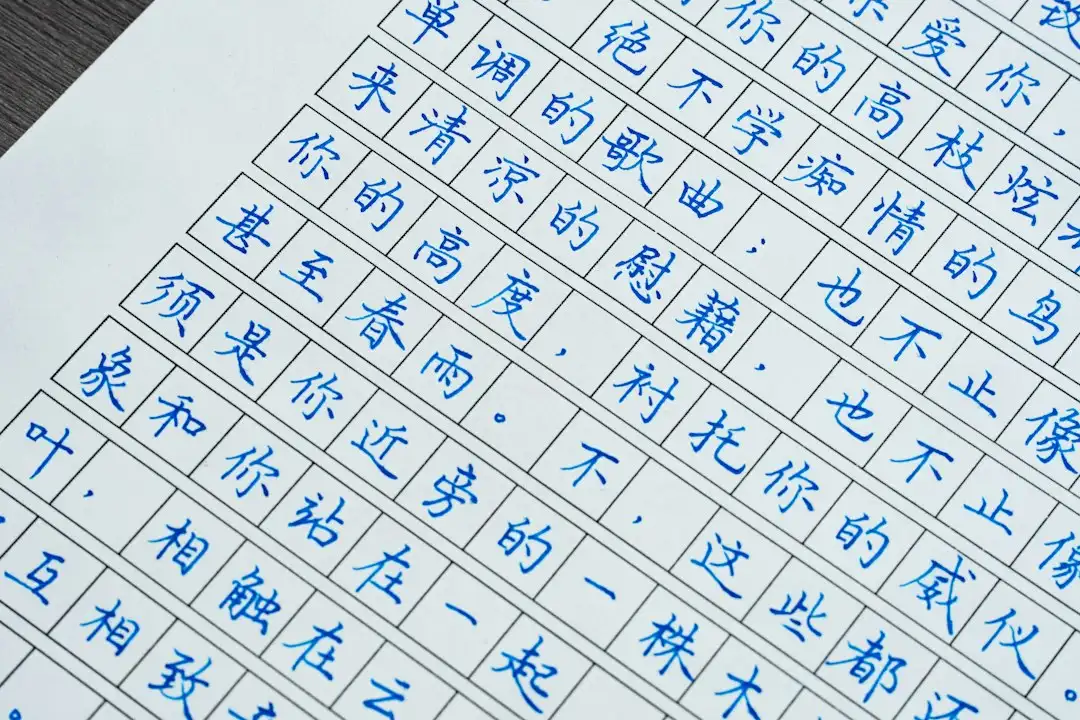 致
爱你,
你的高枝炫
绝不学痴情的鸟
单调的歌曲;也不止像
来清凉的慰藉,也不止像
你的高度,衬托你的威仪。
甚至春雨。不,这些都还
须是你近旁的一株木
象和你站在一起
叶,相触在云
互相致